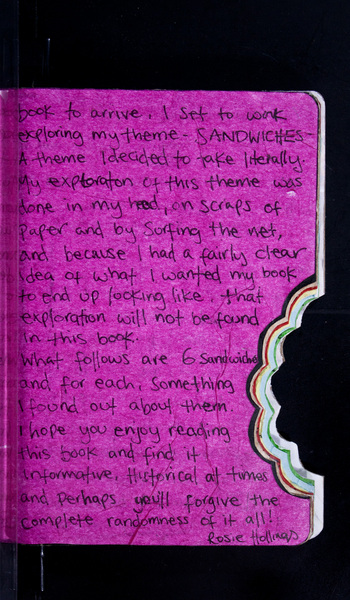 book to arrive. I set to work
exploring my theme - SANDWICHES -
A theme I decided to take literally.
My exploration of this theme was
done in my head, on scraps of
paper and by Sorfing the net,
and because I had a fairly clear
idea of what I wanted my book
to end up looking like, that
exploration will not be found
in this book.
What follows are 6 sandwiches
and for each, something
I found out about them.
I hope you enjoy reading
this book and find it
informative, Historical at times
and perhaps you'll forgive the
complete randomness of it all!
Rosie